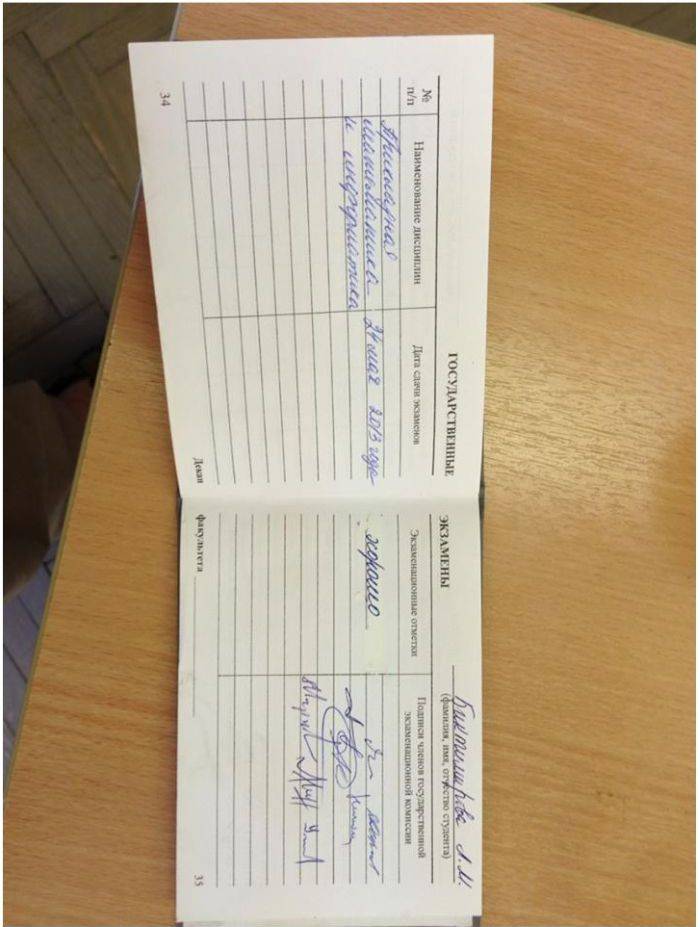 ГОСУДАРСТВЕННЫЕ
№ п/п
Наименование дисциплин
Дата сдачи экзаменов
Прикладная
математика 24 мая 2013 года
и информатика
Декан
34
Биктимирова А. И.
(фамилия, имя, отчество студента)
ЭКЗАМЕНЫ
Экзаменационные отметки
Подписи членов государственной
экзаменационной комиссии
хорошо
факультета
35